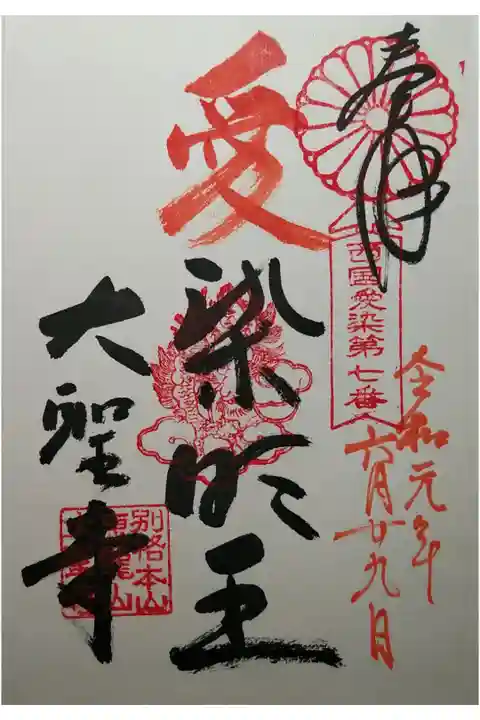 奉拝
西国愛染第七番
令和元年
六月廿九日
愛染明王
大聖寺
別格本山